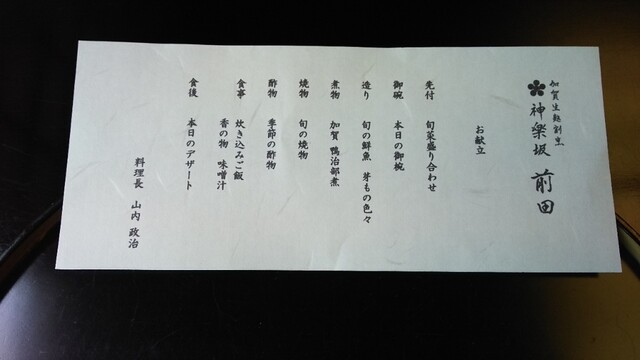 加賀生麩割烹
神樂坂 前田
お献立
先付 旬菜盛り合わせ
御碗 本日の御椀
造り 旬の鮮魚 芽もの色々
煮物 加賀 鴨治部煮
焼物 旬の焼物
酢物 季節の酢物
食事 炊き込みご飯
香の物 味噌汁
食後 本日のデザート
料理長 山内 政治